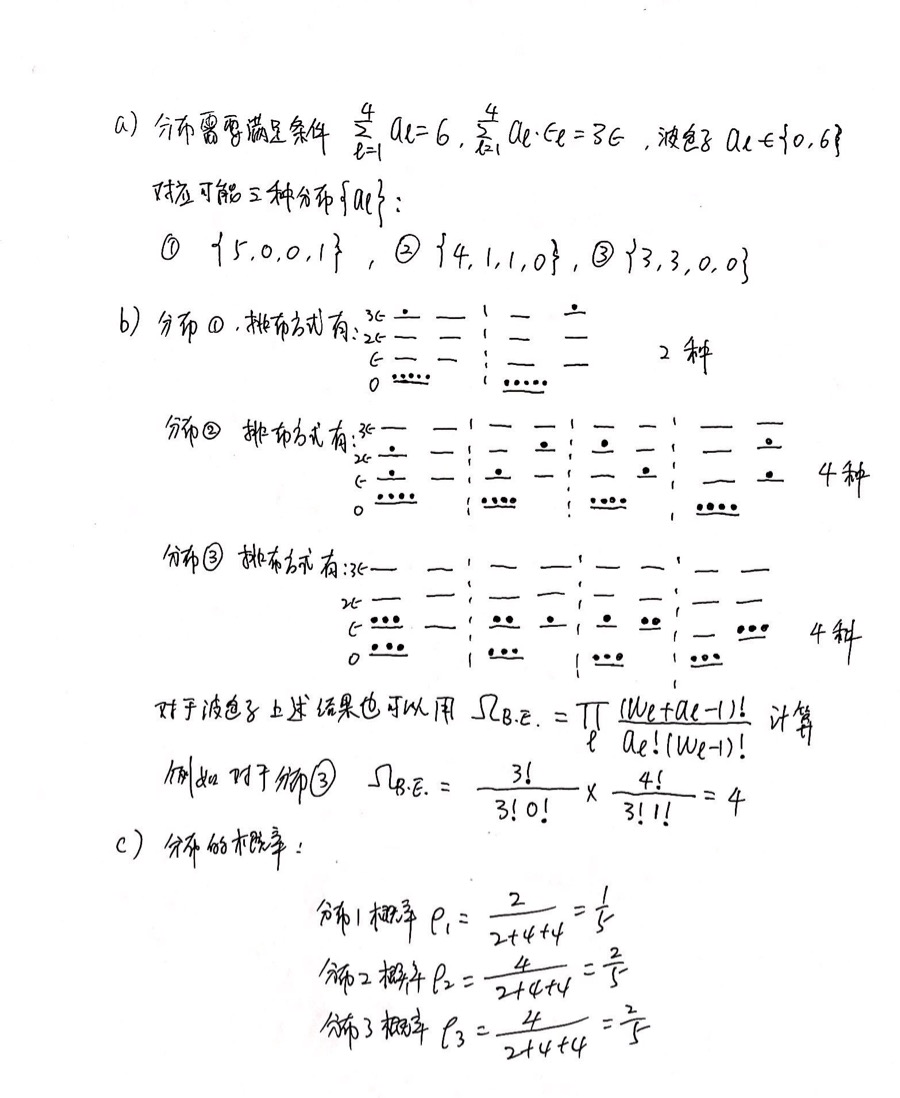 a) 分布需要满足条件 \sum_{l=1}^{4} a_l = 6, \sum_{l=1}^{4} a_l·ϵ_l = 3ϵ, 波色子 a_l ∈ {0,6}
对应可能三种分布{a_l}:
① {5,0,0,1}, ② {4,1,1,0}, ③ {3,3,0,0}
b) 分布①, 排布方式有: 3ϵ
2ϵ
ϵ
0
2种
分布② 排布方式有: 3ϵ
2ϵ
ϵ
0
4种
分布③ 排布方式有: 3ϵ
2ϵ
ϵ
0
4种
对于波色子上述结果也可以用 Ω_{B.E.} = \prod_l \frac{(W_l+a_l-1)!}{a_l!(W_l-1)!} 计算
例如对于分布③ Ω_{B.E.} = \frac{3!}{3!0!} × \frac{4!}{3!1!} = 4
c) 分布的概率:
分布1概率 ρ_1 = \frac{2}{2+4+4} = \frac{1}{5}
分布2概率 ρ_2 = \frac{4}{2+4+4} = \frac{2}{5}
分布3概率 ρ_3 = \frac{4}{2+4+4} = \frac{2}{5}